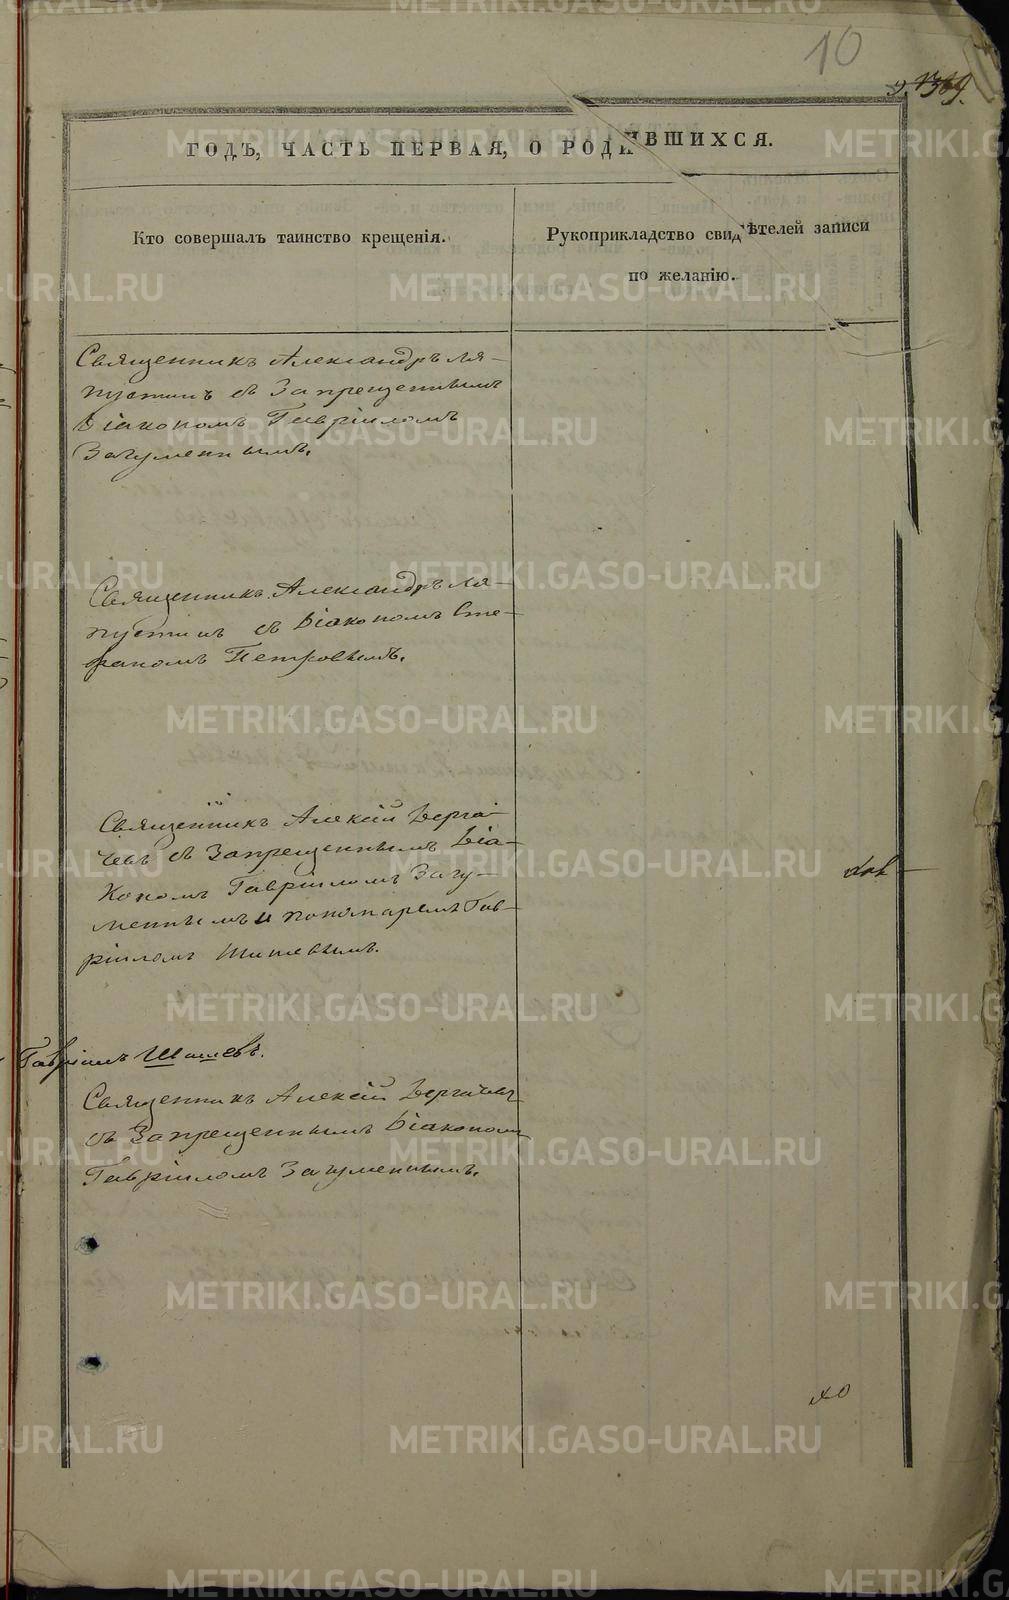 10
ГОДЪ, ЧАСТЬ ПЕРВАЯ, О РОДИВШИХСЯ.
Кто совершалъ таинство крещенія.
Рукоприкладство свидѣтелей записи
по желанію.
Священникъ Александръ Ля-
пустинъ съ Запрещеннымъ
Діакономъ Гавріиломъ
Загуменнымъ.
Священникъ Александръ Ля-
пустинъ съ Діакономъ Сте-
фаномъ Петровымъ.
Священникъ Алексій Дерга-
чевъ съ Запрещеннымъ Діа-
кономъ Гавріиломъ Загу-
меннымъ и пономаремъ Гав-
ріиломъ Шишевымъ.
Гавріилъ Шишевъ.
Священникъ Алексій Дергачевъ
съ Запрещеннымъ Діакономъ
Гавріиломъ Загуменнымъ.
METRIKI.GASO-URAL.RU